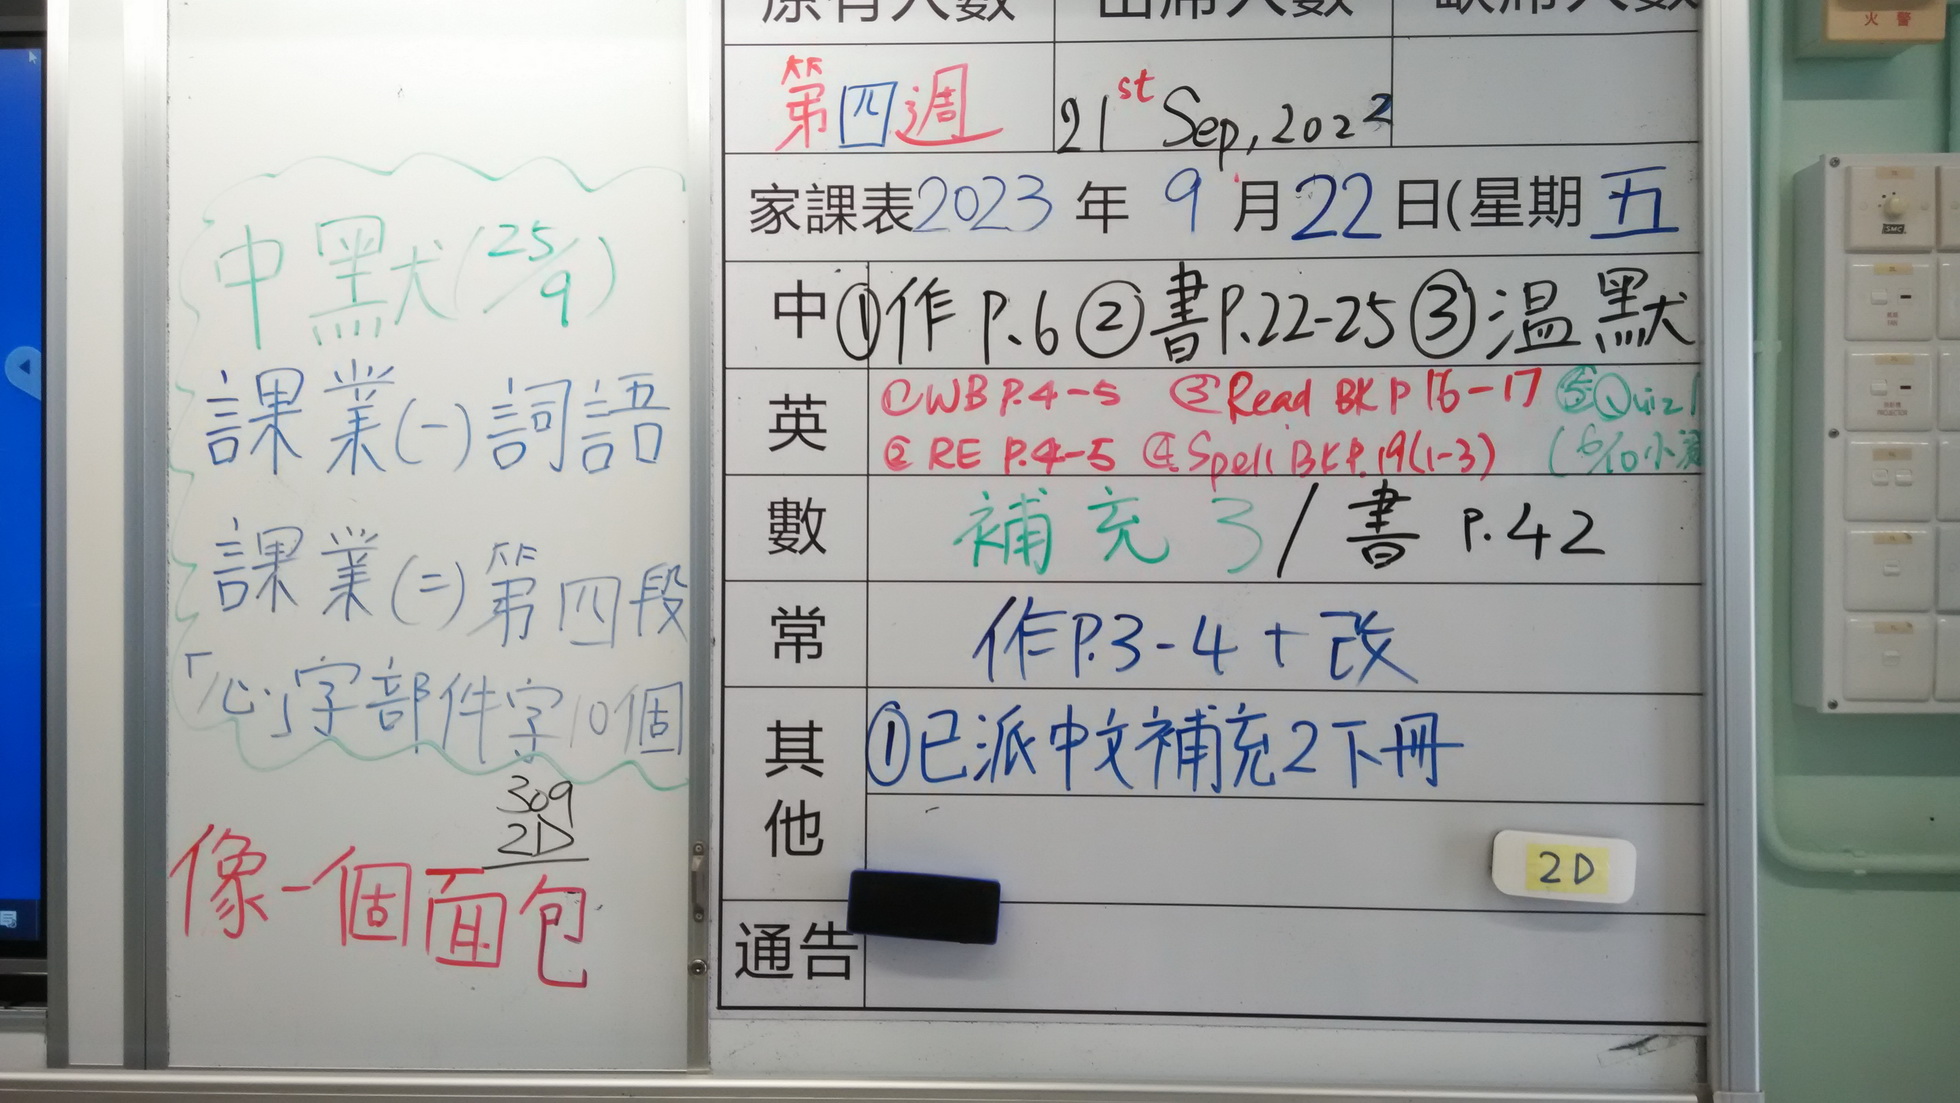 中默(25/9)
課業(一)詞語
課業(二)第四段
「心」字部件字10個
309
2D
像一個面包
原有人數 出席人數 缺席人數
第四週 21st Sep, 2022
家課表2023年9月22日(星期五
中 ①作P.6 ②書P.22-25 ③温默
英 ①WB P.4-5 ③Read BK P 16-17 ⑤Quiz 1
②RE P.4-5 ④Spell BK P.19(1-3) (6/10小測
數 補充3/書 P.42
常 作P.3-4+改
其他 ①已派中文補充2下冊
2D
通告
火警